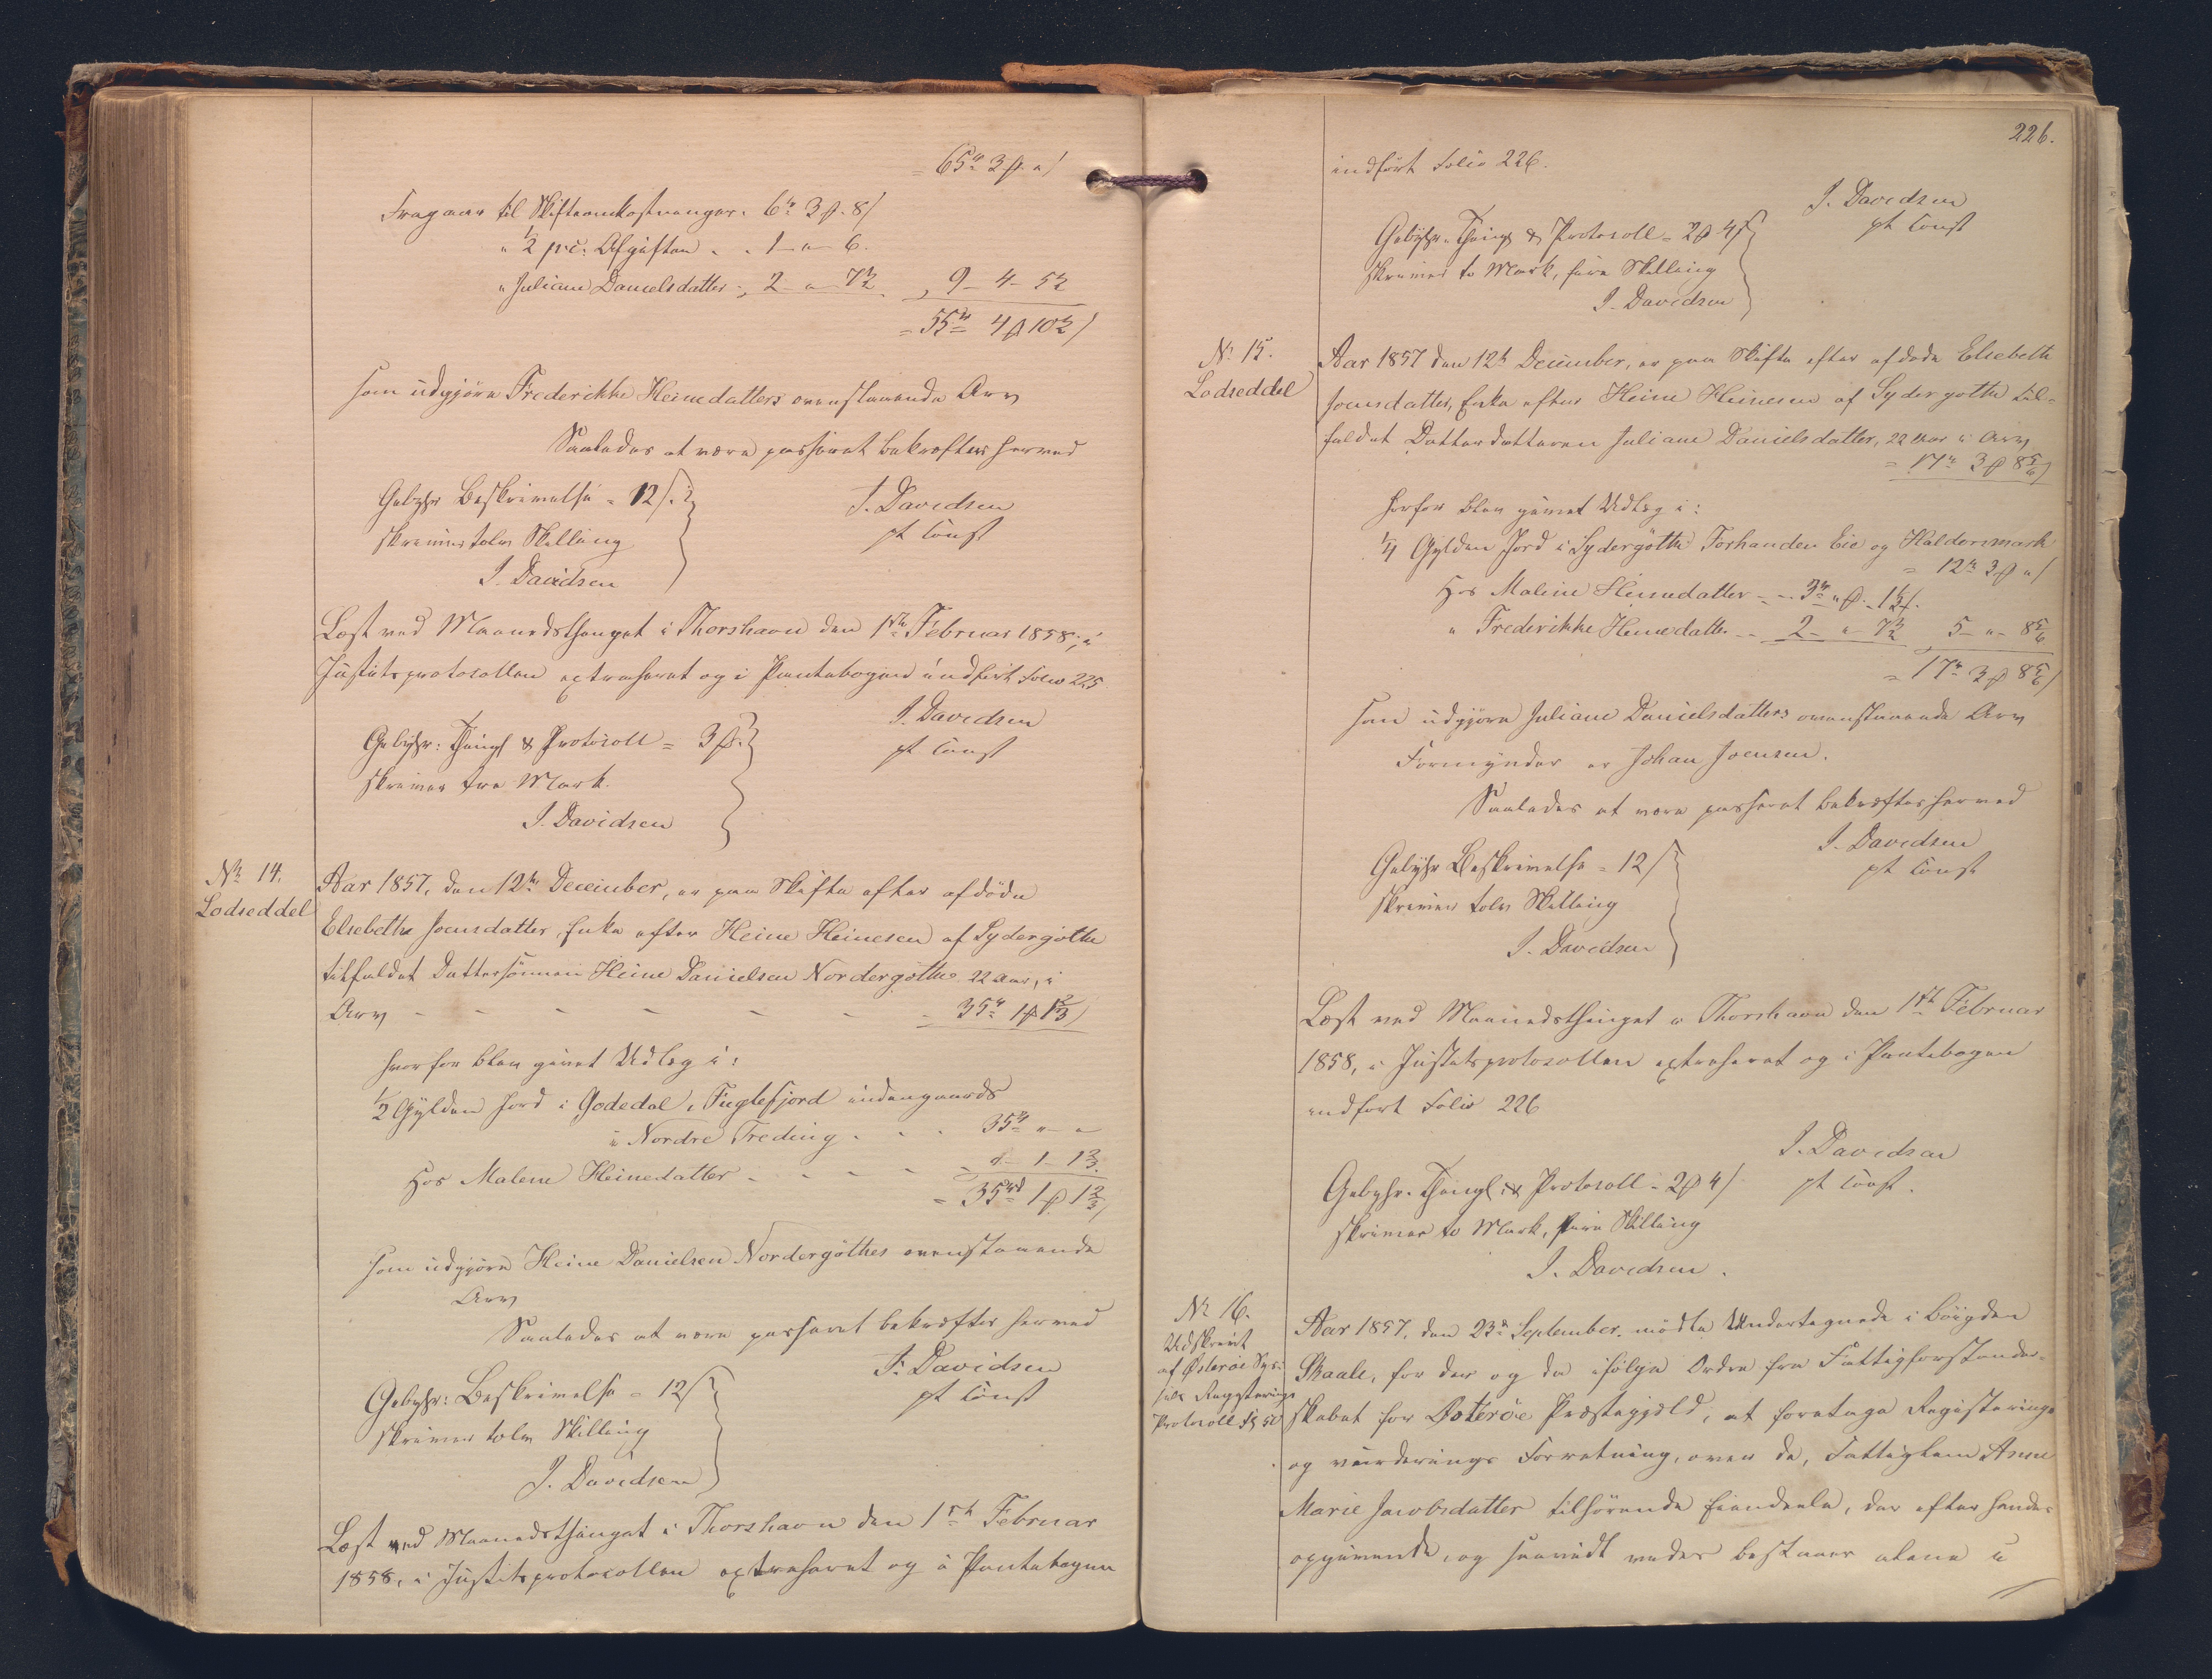 = 65rd 3 ß " /
Fragaaer til Skifteomkostninger. 6rd 3 ß. 8/
" 1/2 pc. Afgiften . . 1 - " - 6.
" Juliane Danielsdatter -, 2 - " - 7 1/2 , 9 - 4 - 5 1/2
= 55rd 4 ß 10 1/2 /
som udgjøre Frederikke Heinedatters ovenstaaende Arv
Saaledes at være passeret bekræftes herved
Gebyhr Beskrivelse = 12/.
J. Davidsen
skriver tolv Skilling
pt Const
J. Davidsen
Læst ved Maanedsthinget i Thorshavn den 1ste Februar 1858, i
Justitsprotocollen extraheret og i Pantebogen indført Folio 225
J. Davidsen
Gebyhr: Thingl & Protocoll = 3 ß.
pt Const
skriver tre Mark.
J. Davidsen
No 14.
Lodseddel
Aar 1857, den 12te December, er paa Skifte efter afdøde
Elsebethe Joensdatter, Enke efter Heine Heinesen af Sydergøthe
tilfaldet Dattersønnen Heine Danielsen Nordergøthe 22 Aar, i
Arv - - - - - - - 35rd 1 ß 1 2/3 /
hvorfor blev givet Udlæg i:
1/2 Gylden Jord i Godedal, Fuglefjord indengaards
i Nordre Treding . . . 35rd " - "
Hos Malene Heinedatter - - - - = " - 1 - 1 2/3.
= 35rd 1 ß 1 2/3 /
som udgjøre Heine Danielsen Nordergøthes ovenstaaende
Arv
Saaledes at være passeret bekræftes herved
J. Davidsen
Gebyhr: Beskrivelse = 12/
pt Const
skriver tolv Skilling
J. Davidsen
Læst ved Maanedsthinget i Thorshavn den 1ste Februar
1858, i Justitsprotocollen extraheret og i Pantebogen
226.
indført Folio 226.
J. Davidsen
Gebyhr. Thingl & Protocoll = 2 ß 4/
pt Const
skriver to Mark, fire Skilling
J. Davidsen
No 15.
Lodseddel
Aar 1857 den 12te December, er paa Skifte efter afdøde Elsebeth
Joensdatter, Enke efter Heine Heinesen af Sydergøthe til=
faldet Datterdatteren Juliane Danielsdatter, 22 Aar i Arv
= 17rd 3 ß 8 5/6 /
herfor blev givet Udlæg i:
1/4 Gylden Jord i Sydergøthe Forhanden Eie og Haldorsmark
= 12rd 3 ß " /
Hos Malene Heinedatter - - 3rd " ß. 1 1/3 /.
" Frederikke Heinedatter - - 2 - " - 7 1/2 5 - " - 8 5/6
= 17rd 3 ß 8 5/6 /
som udgjøre Juliane Danielsdatters ovenstaaende Arv
Formynder er Johan Joensen.
Saaledes at være passeret bekræftes herved
J. Davidsen
Gebyhr Beskrivelse = 12/
pt Const
skriver tolv Skilling
J. Davidsen
Læst ved Maanedsthinget i Thorshavn den 1ste Februar
1858, i Justitsprotocollen extraheret og i Pantebogen
indført Folio 226
J. Davidsen
Gebyhr. Thingl: & Protocoll = 2 ß 4/
pt Const.
skriver to Mark, fire Skilling
J. Davidsen.
No 16.
Udskrivt
af Østerøe Sys=
sels Registerings
Protocoll
Aar 1857, den 23de September. mødte Undertegnede i Böigden
Skaale, for der og da ifølge Ordre fra Fattigforstander=
skabet for Østerøe Præstegjeld, at foretage Registerings
og vurderings Forretning, over de, Fattiglem Anne
Marie Jacobsdatter tilhørende Eiendele, der efter hendes
opgivende, og saavidt vides bestaaer alene i